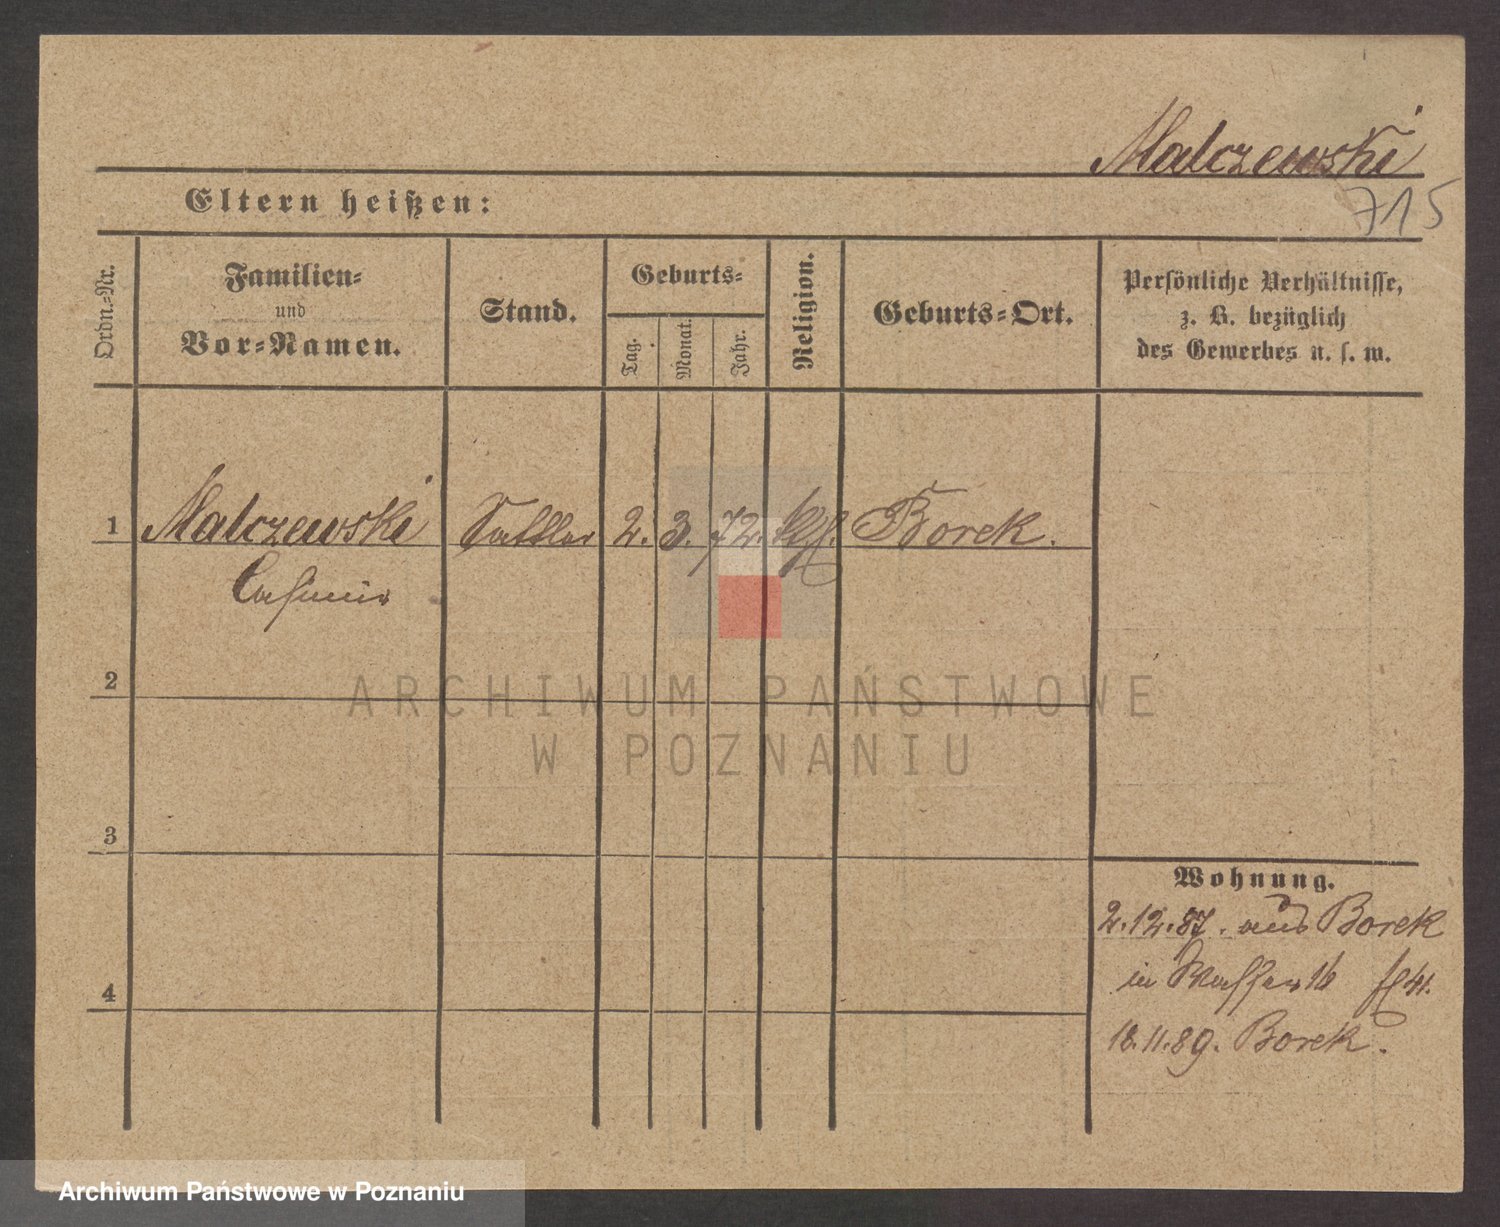 Malczewski
715
Eltern heißen:
Ordn.-Nr.
Familien-
und
Vor-Namen.
Stand.
Geburts-
Tag.
Monat.
Jahr.
Religion.
Geburts-Ort.
Persönliche Verhältnisse,
z. B. bezüglich
des Gewerbes u. s. w.
1 Malczewski Sattler 2. 3. 72. Borek.
Casimir
2
ARCHIWUM PAŃSTWOWE
W POZNANIU
3
Wohnung.
2.12.87. aus Borek
in Wasser 16
4
18.11.89. Borek.
Archiwum Państwowe w Poznaniu